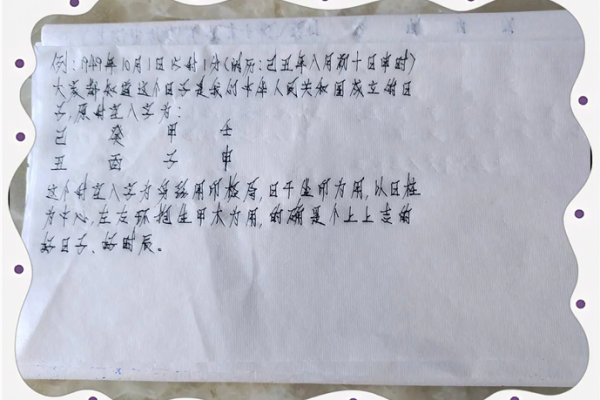 例:1949年10月1日15时1分(阴历:己五年八月初十日申时)
大家都知道这个日子是我们中华人民共和国成立的日
子,原时空八字为:
己 癸 甲 壬
丑 酉 子 申
这个时空八字为身弱用印格局,日干坐印为用,以日柱
为中心,左右环抱生甲木为用,的确是个上上吉的
好日子、好时辰。